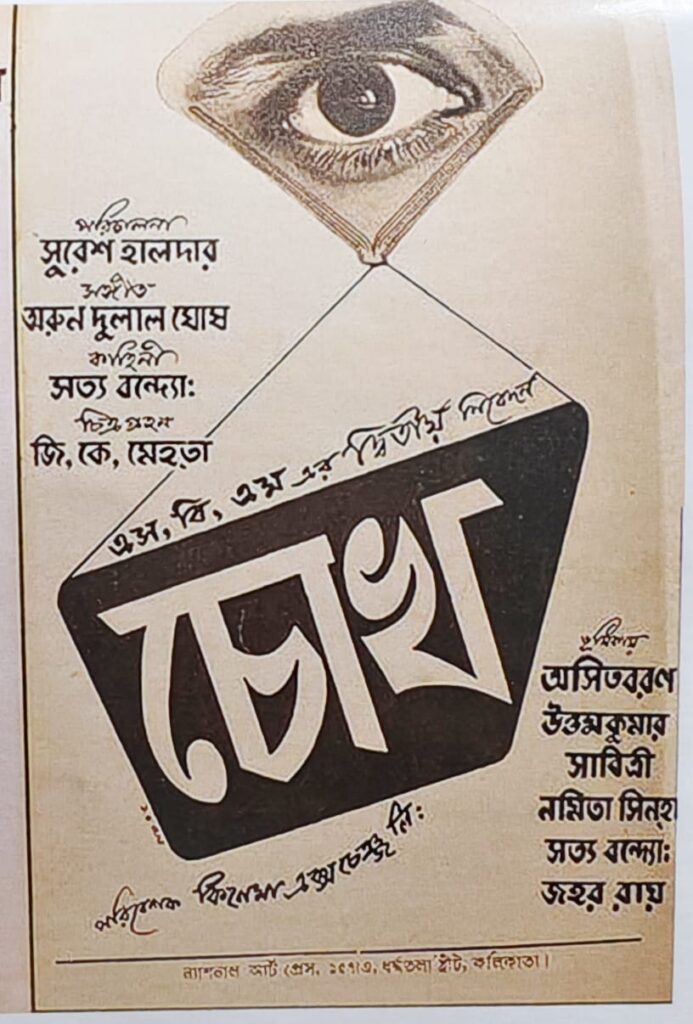 পরিচালনা
সুরেশ হালদার
সঙ্গীত
অরুন দুলাল ঘোষ
কাহিনী
সত্য বন্দ্যো:
চিত্রগ্রহন
জি, কে, মেহতা
এস, বি, এম এর দ্বিতীয় নিবেদন
চোখ
ভূমিকায়
অসিতবরণ
উত্তমকুমার
সাবিত্রী
নমিতা সিনহা
সত্য বন্দ্যো:
জহর রায়
পরিবেশক কিনেমা এক্সচেঞ্জ লি:
ন্যাশনাল আর্ট প্রেস, ১৫৭এ, ধর্ম্মতলা ষ্ট্রীট, কলিকাতা।